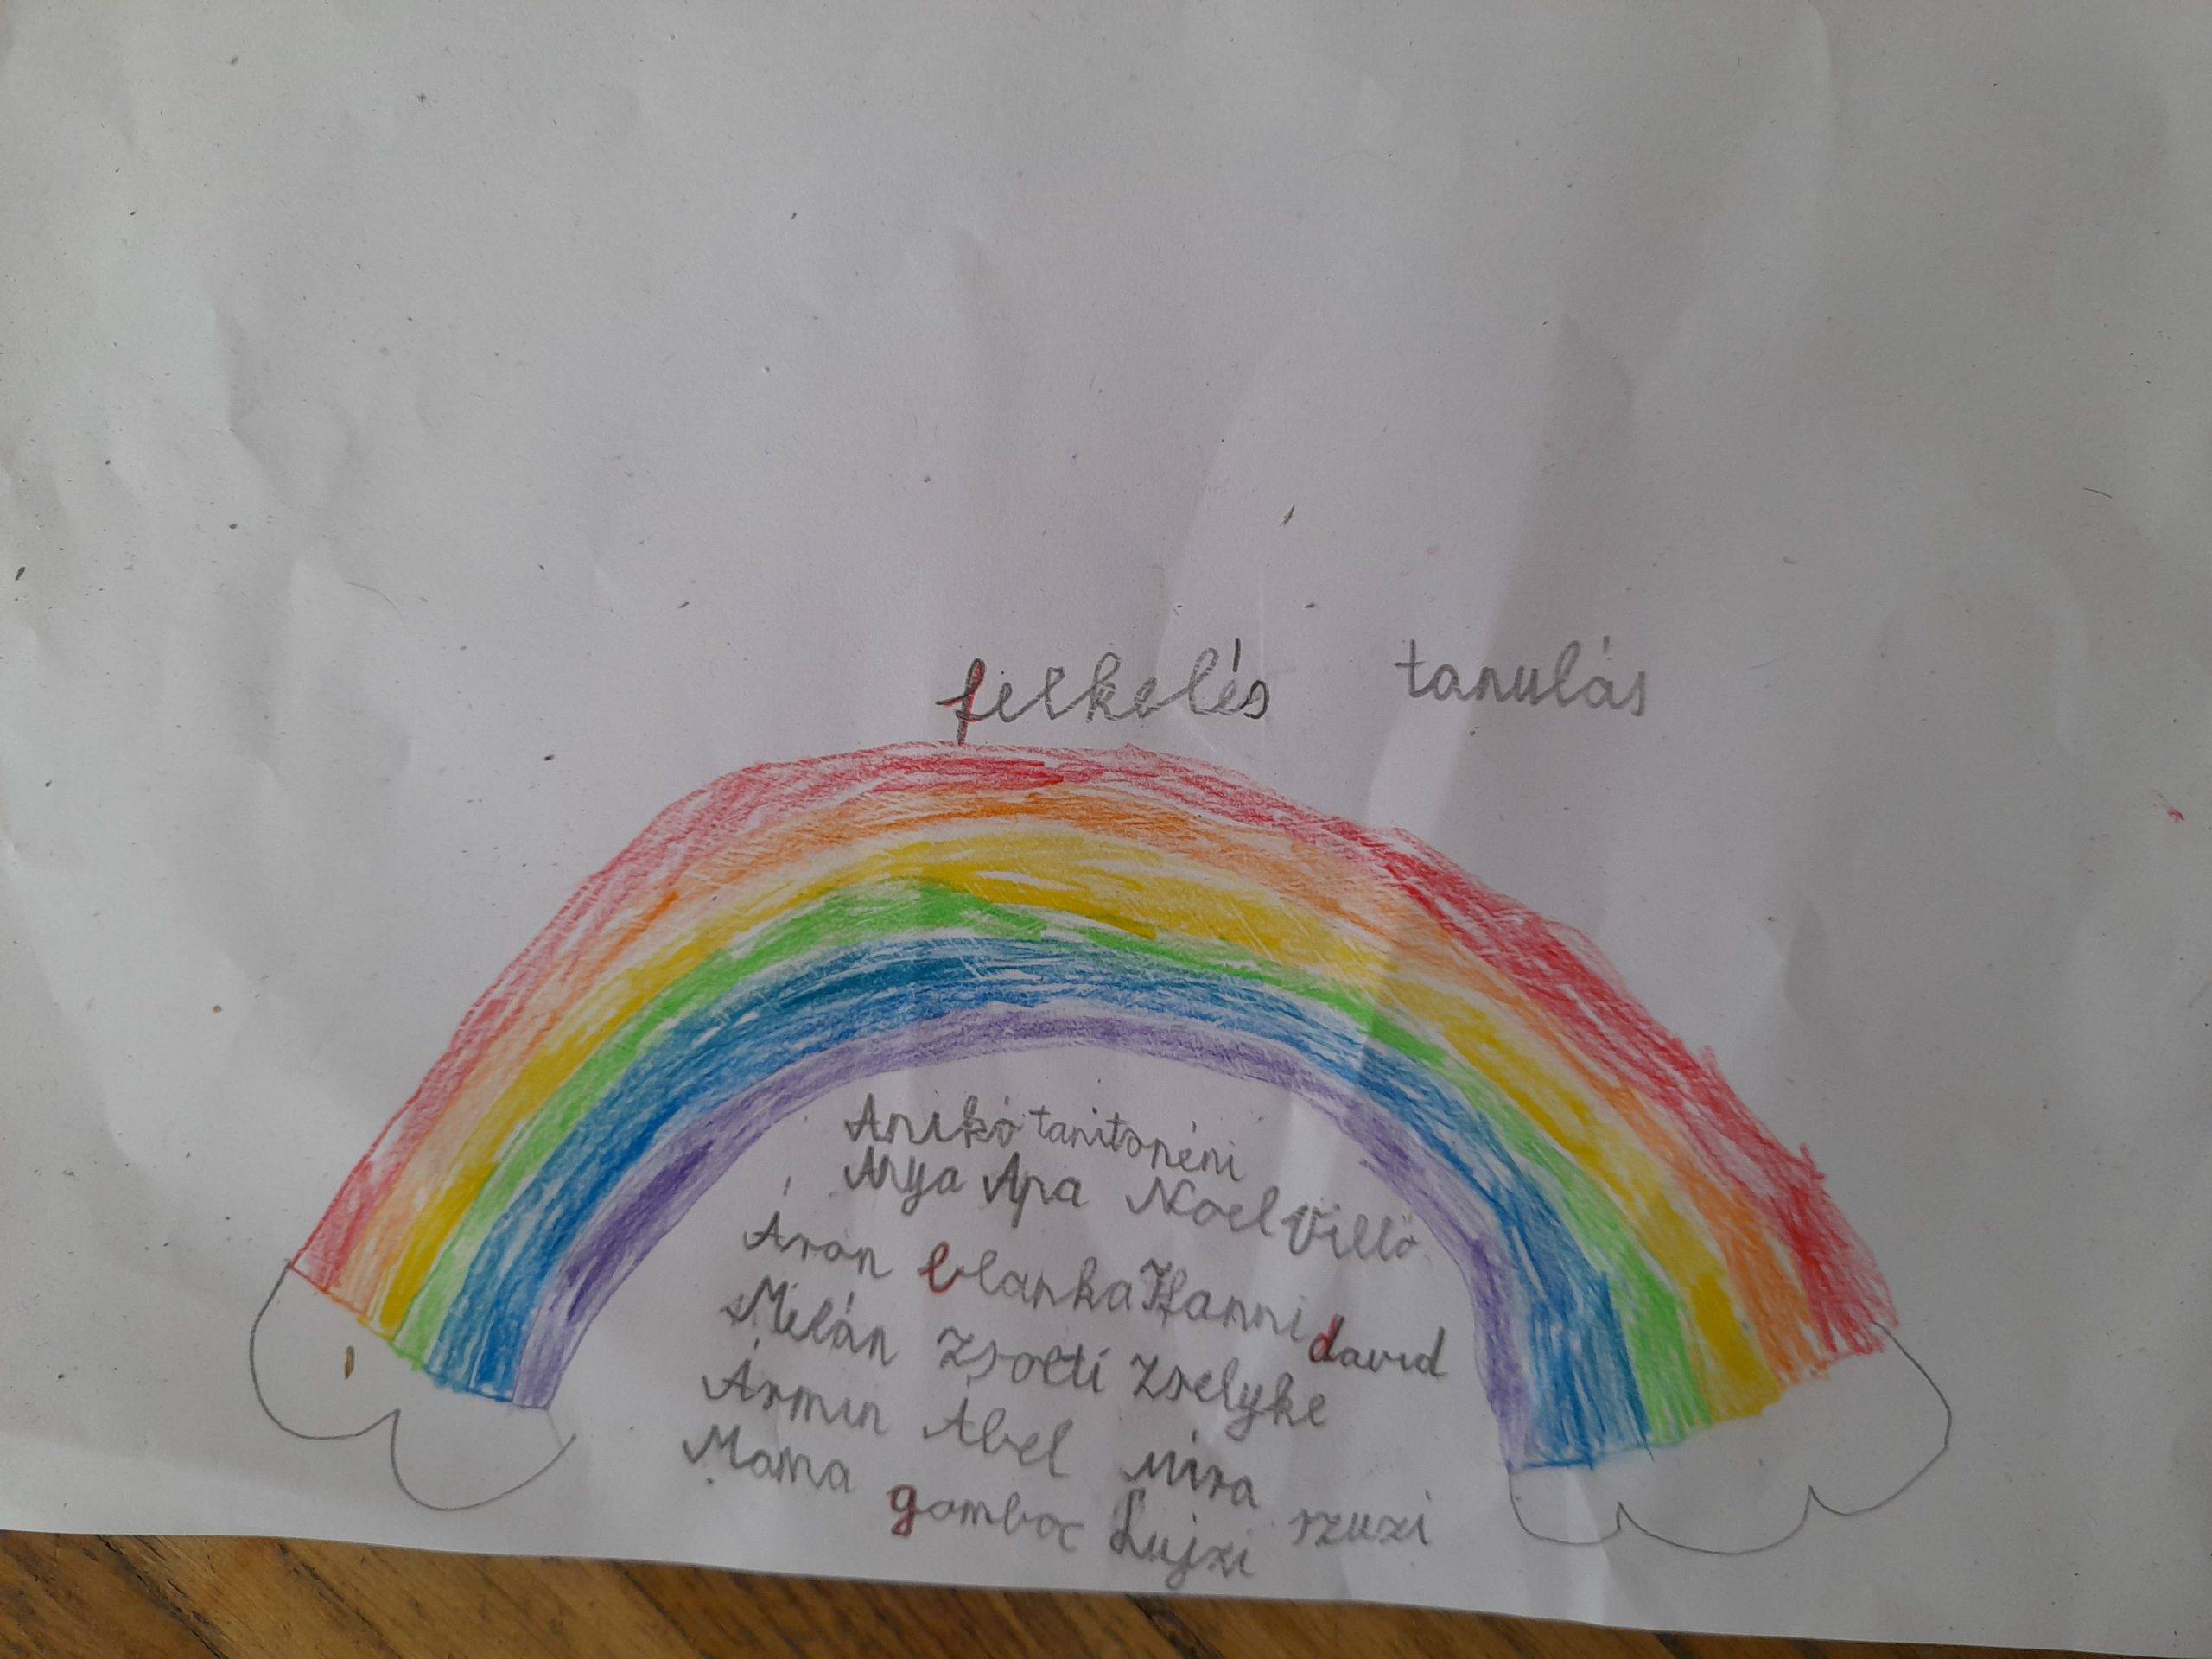 felkelés tanulás
Anikó tanitonéni
Anya Apa Noel Villő
Áron blanka Hanni david
Milán Zsolti Zselyke
Ármin Ábel Mira
Mama gomboc Lujzi szuszi